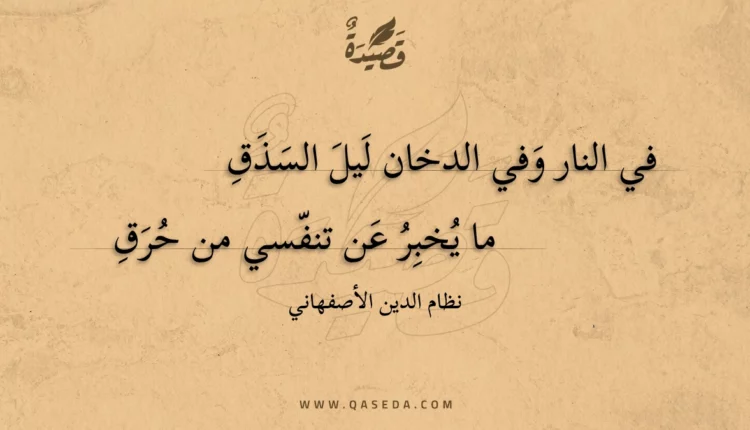 قَصِيْدَةٌ
في النار وَفي الدخان لَيلَ السَذَقِ
ما يُخبِرُ عَن تنفّسي من حُرَقِ
نظام الدين الأصفهاني
WWW.QASEDA.COM